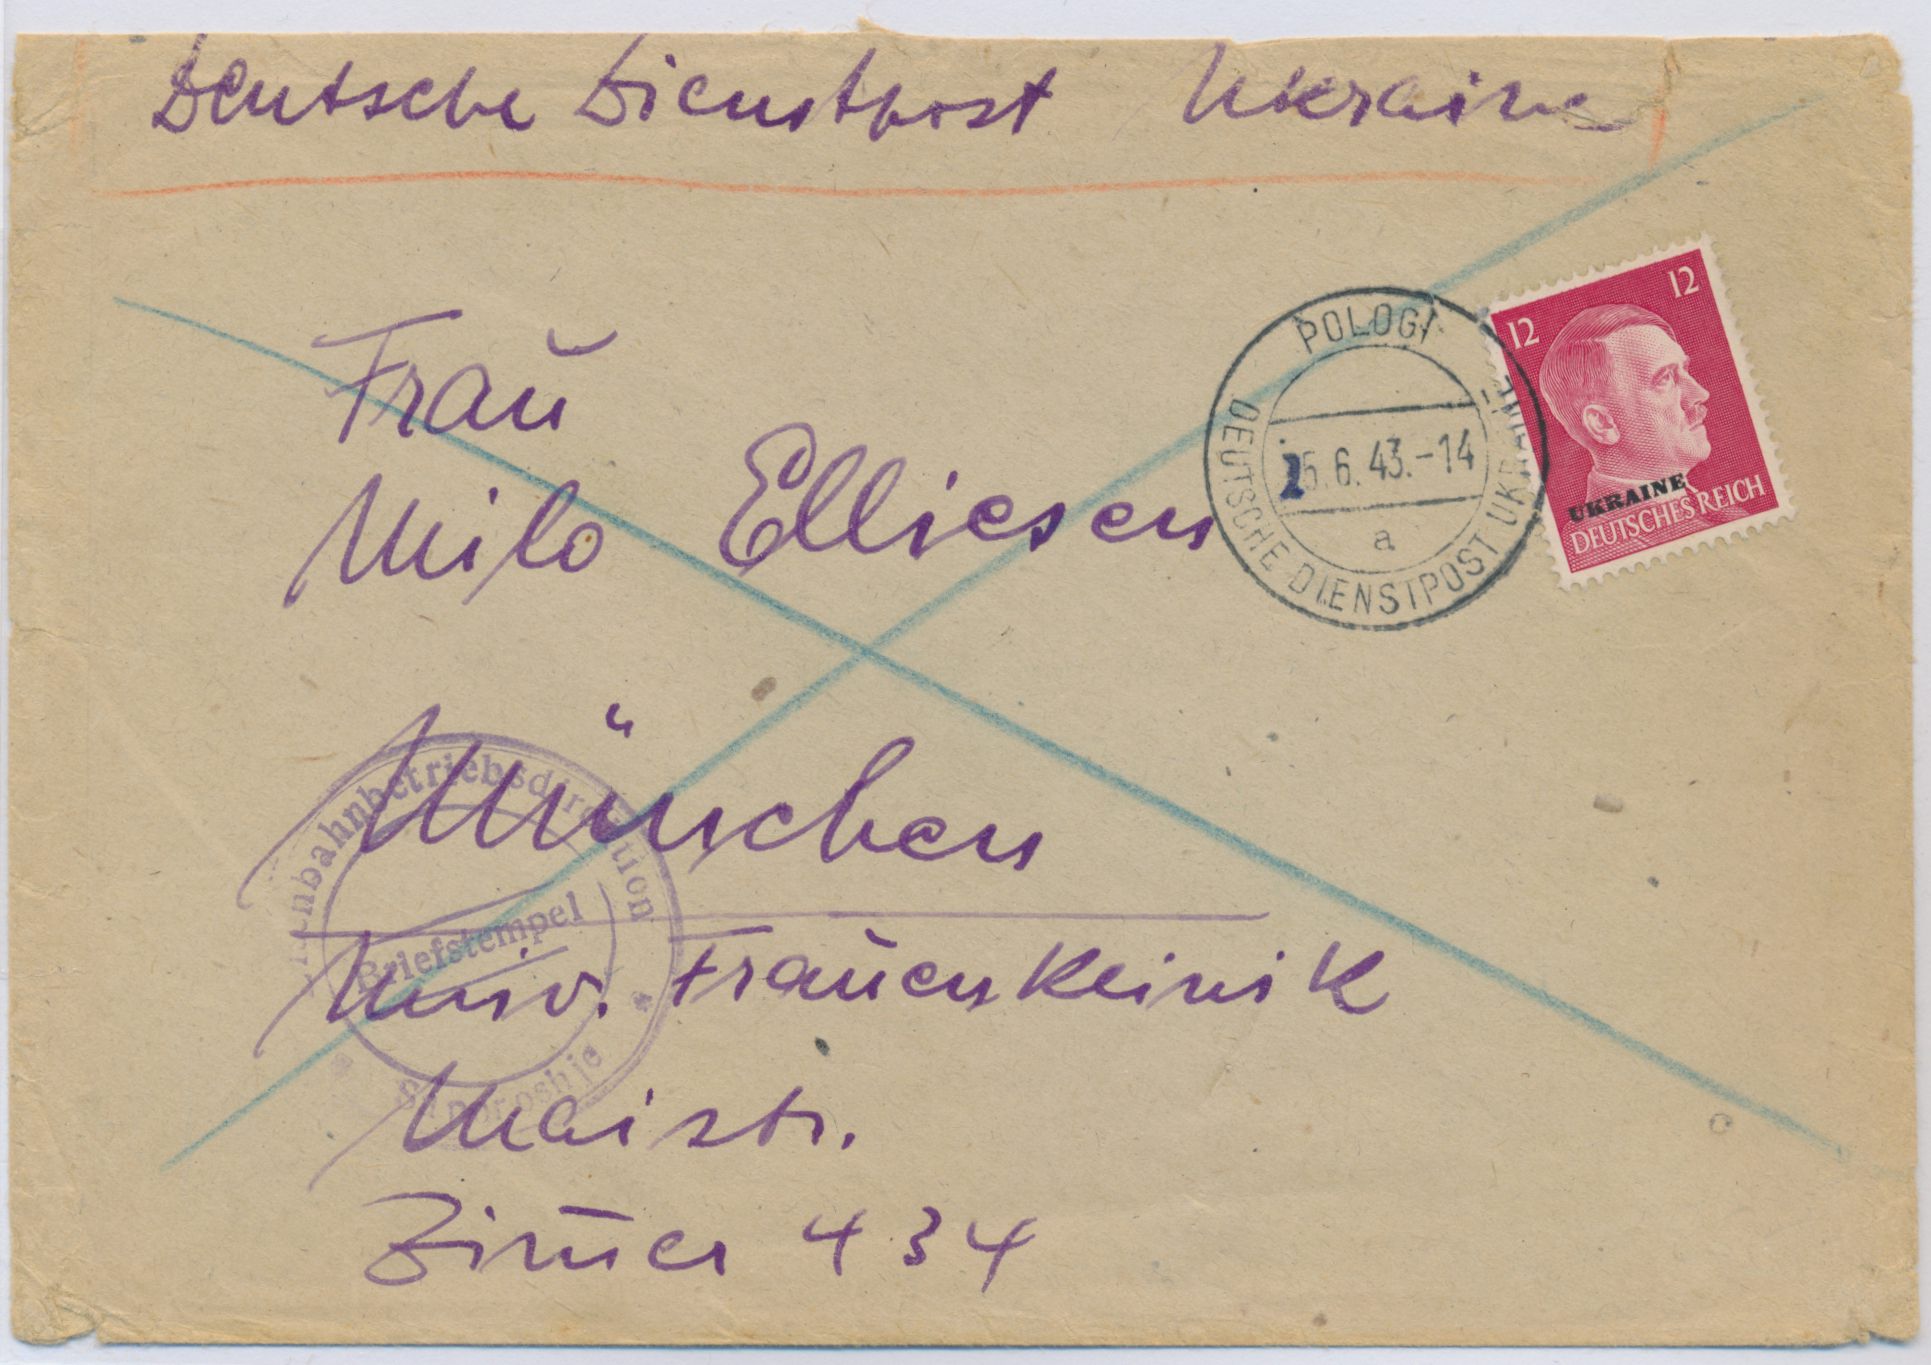 Deutsche Dienstpost Ukraine
12 12
UKRAINE
DEUTSCHES REICH
POLOGI
25.6.43.-14
a
DEUTSCHE DIENSTPOST UKRAINE
Frau
Milo Elliesen
München
Univ. Frauenklinik
Maistr.
Zim̅er 434
enbahnbetriebsdirektion
Briefstempel
Saporoshje